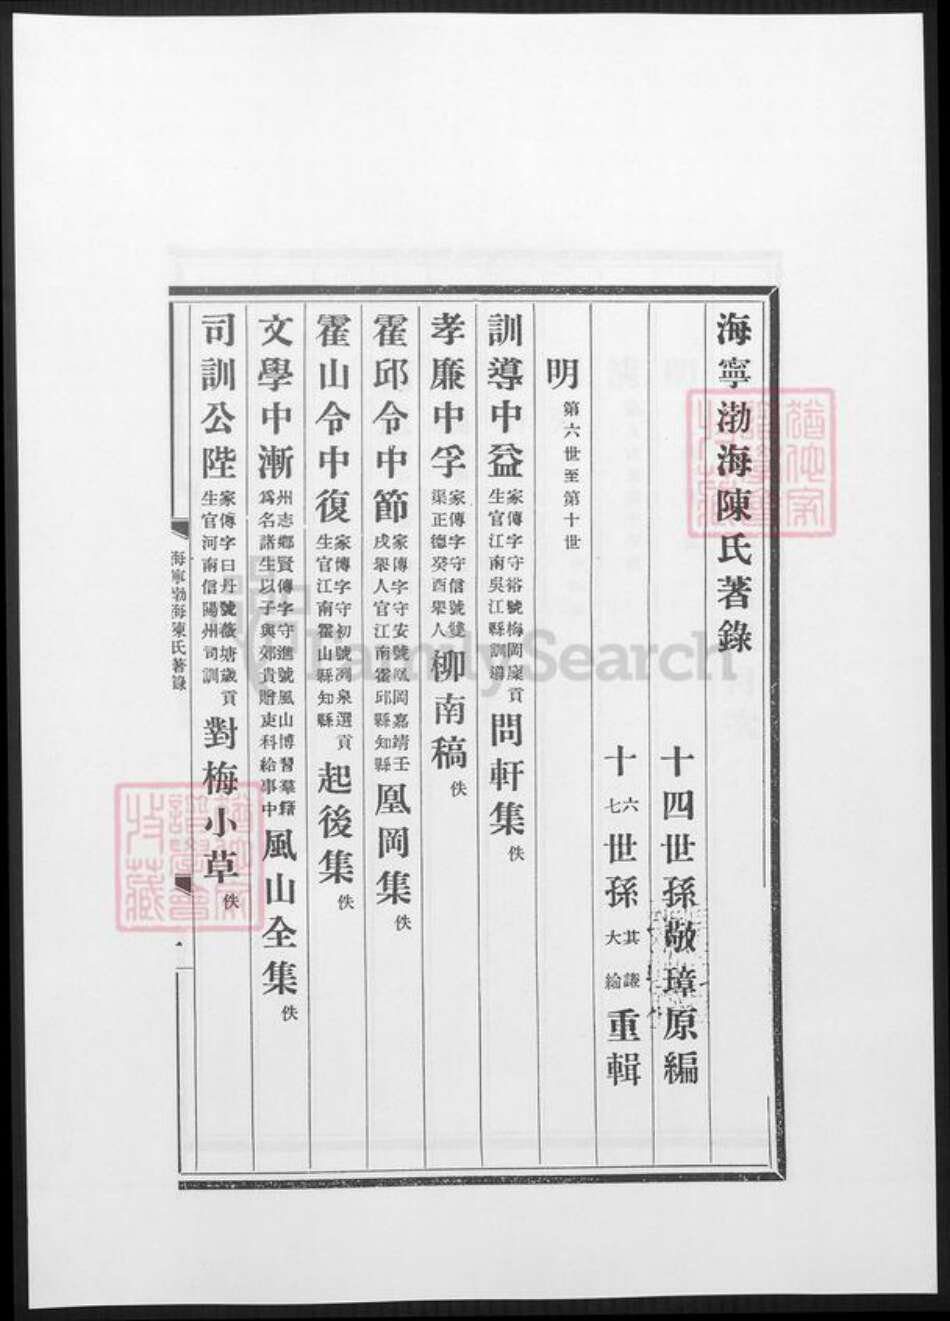 海寧渤海陳氏著錄
十四世孫敬璋原編
十六七世孫其謙大綸重輯
明第六世至第十世
訓導中益家傳字守裕號梅岡廩貢生官江南吳江縣訓導問軒集佚
孝廉中孚家傳字守信號雙渠正德癸酉舉人柳南稿佚
霍邱令中節家傳字守安號鳳岡嘉靖壬戌舉人官江南霍邱縣知縣凰岡集佚
霍山令中復家傳字守初號冽泉選貢生官江南霍山縣知縣起後集佚
文學中漸州志鄉賢傳字守進號風山博習羣籍爲名諸生以子與郊貴贈吏科給事中風山全集佚
司訓公陛家傳字曰丹號薇塘歲貢生官河南信陽州司訓對梅小草佚
海寧渤海陳氏著錄
一
FamilySearch